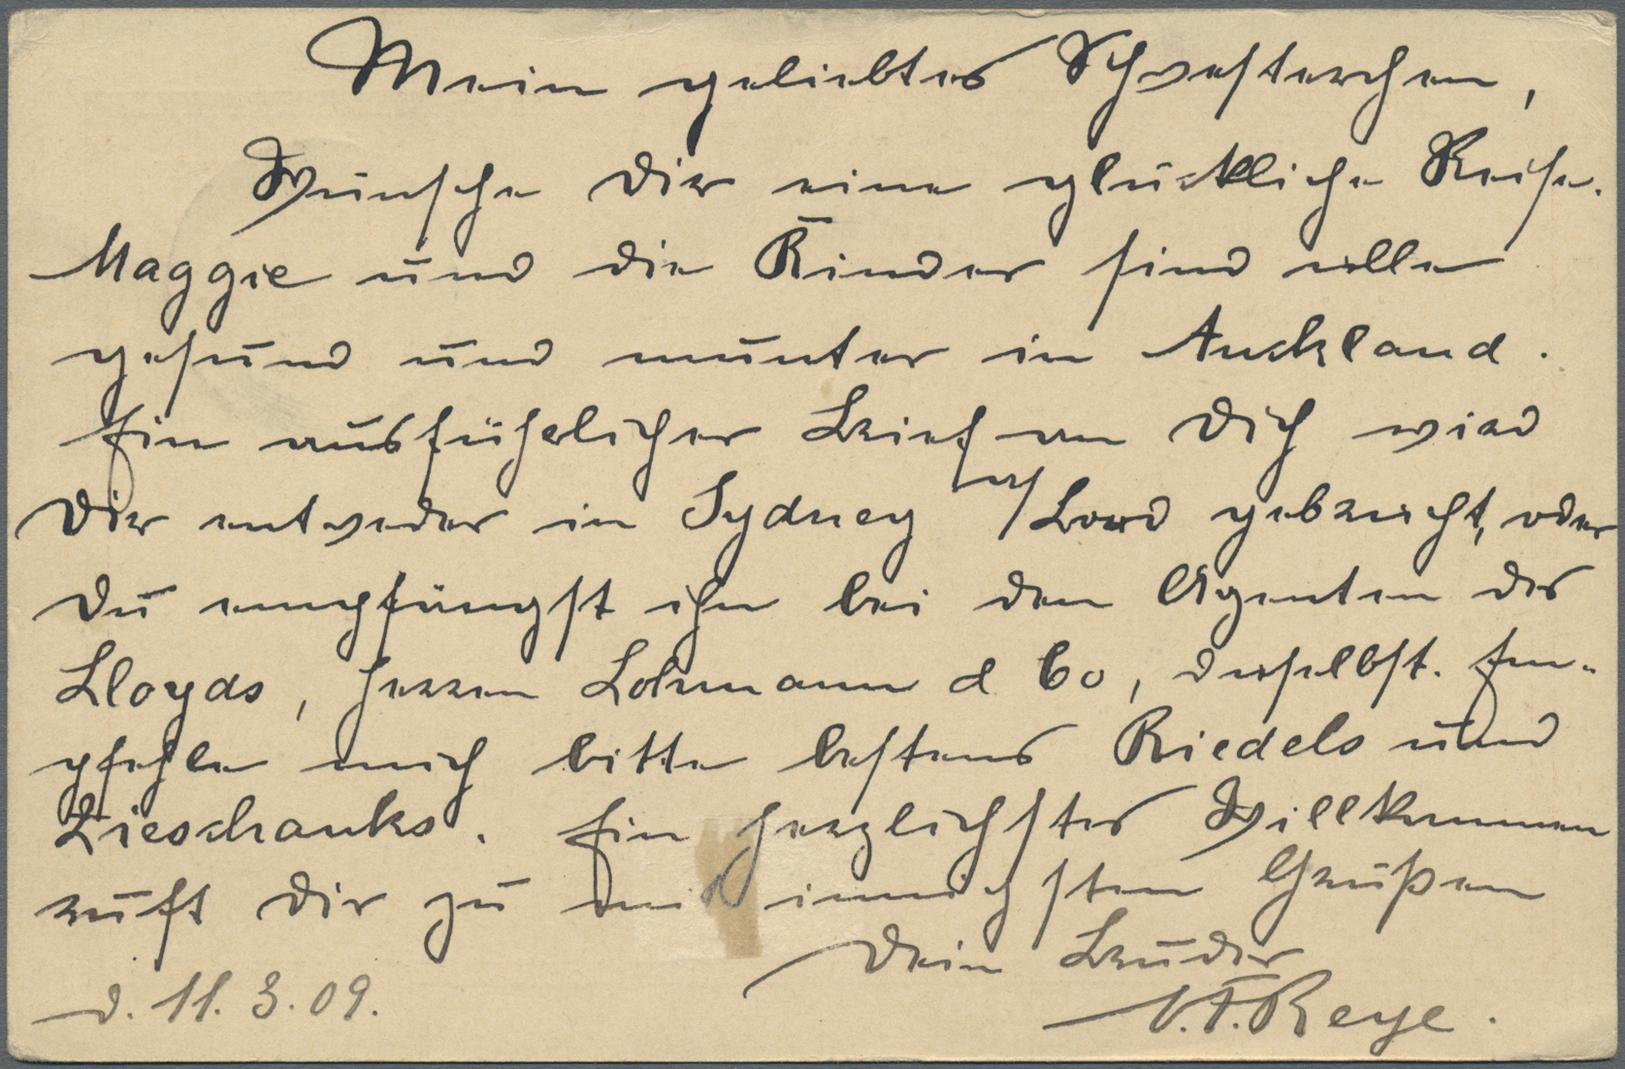 Mein geliebtes Schwesterchen,
Wünsche Dir eine glückliche Reise.
Maggie und die Kinder sind alle
gesund und munter in Auckland.
Ein ausführlicher Brief an Dich wird
Dir entweder in Sydney a/Bord gebracht, oder
Du empfängst ihn bei den Agenten des
Lloyds, Herren Lohmann & Co, daselbst. Em-
pfehle mich bitte bestens Riedels und
Zieschanks. Ein herzlichstes Willkommen
ruft Dir zu mit innigsten Grüßen
Dein Bruder
d. 11. 3. 09.
Reye.